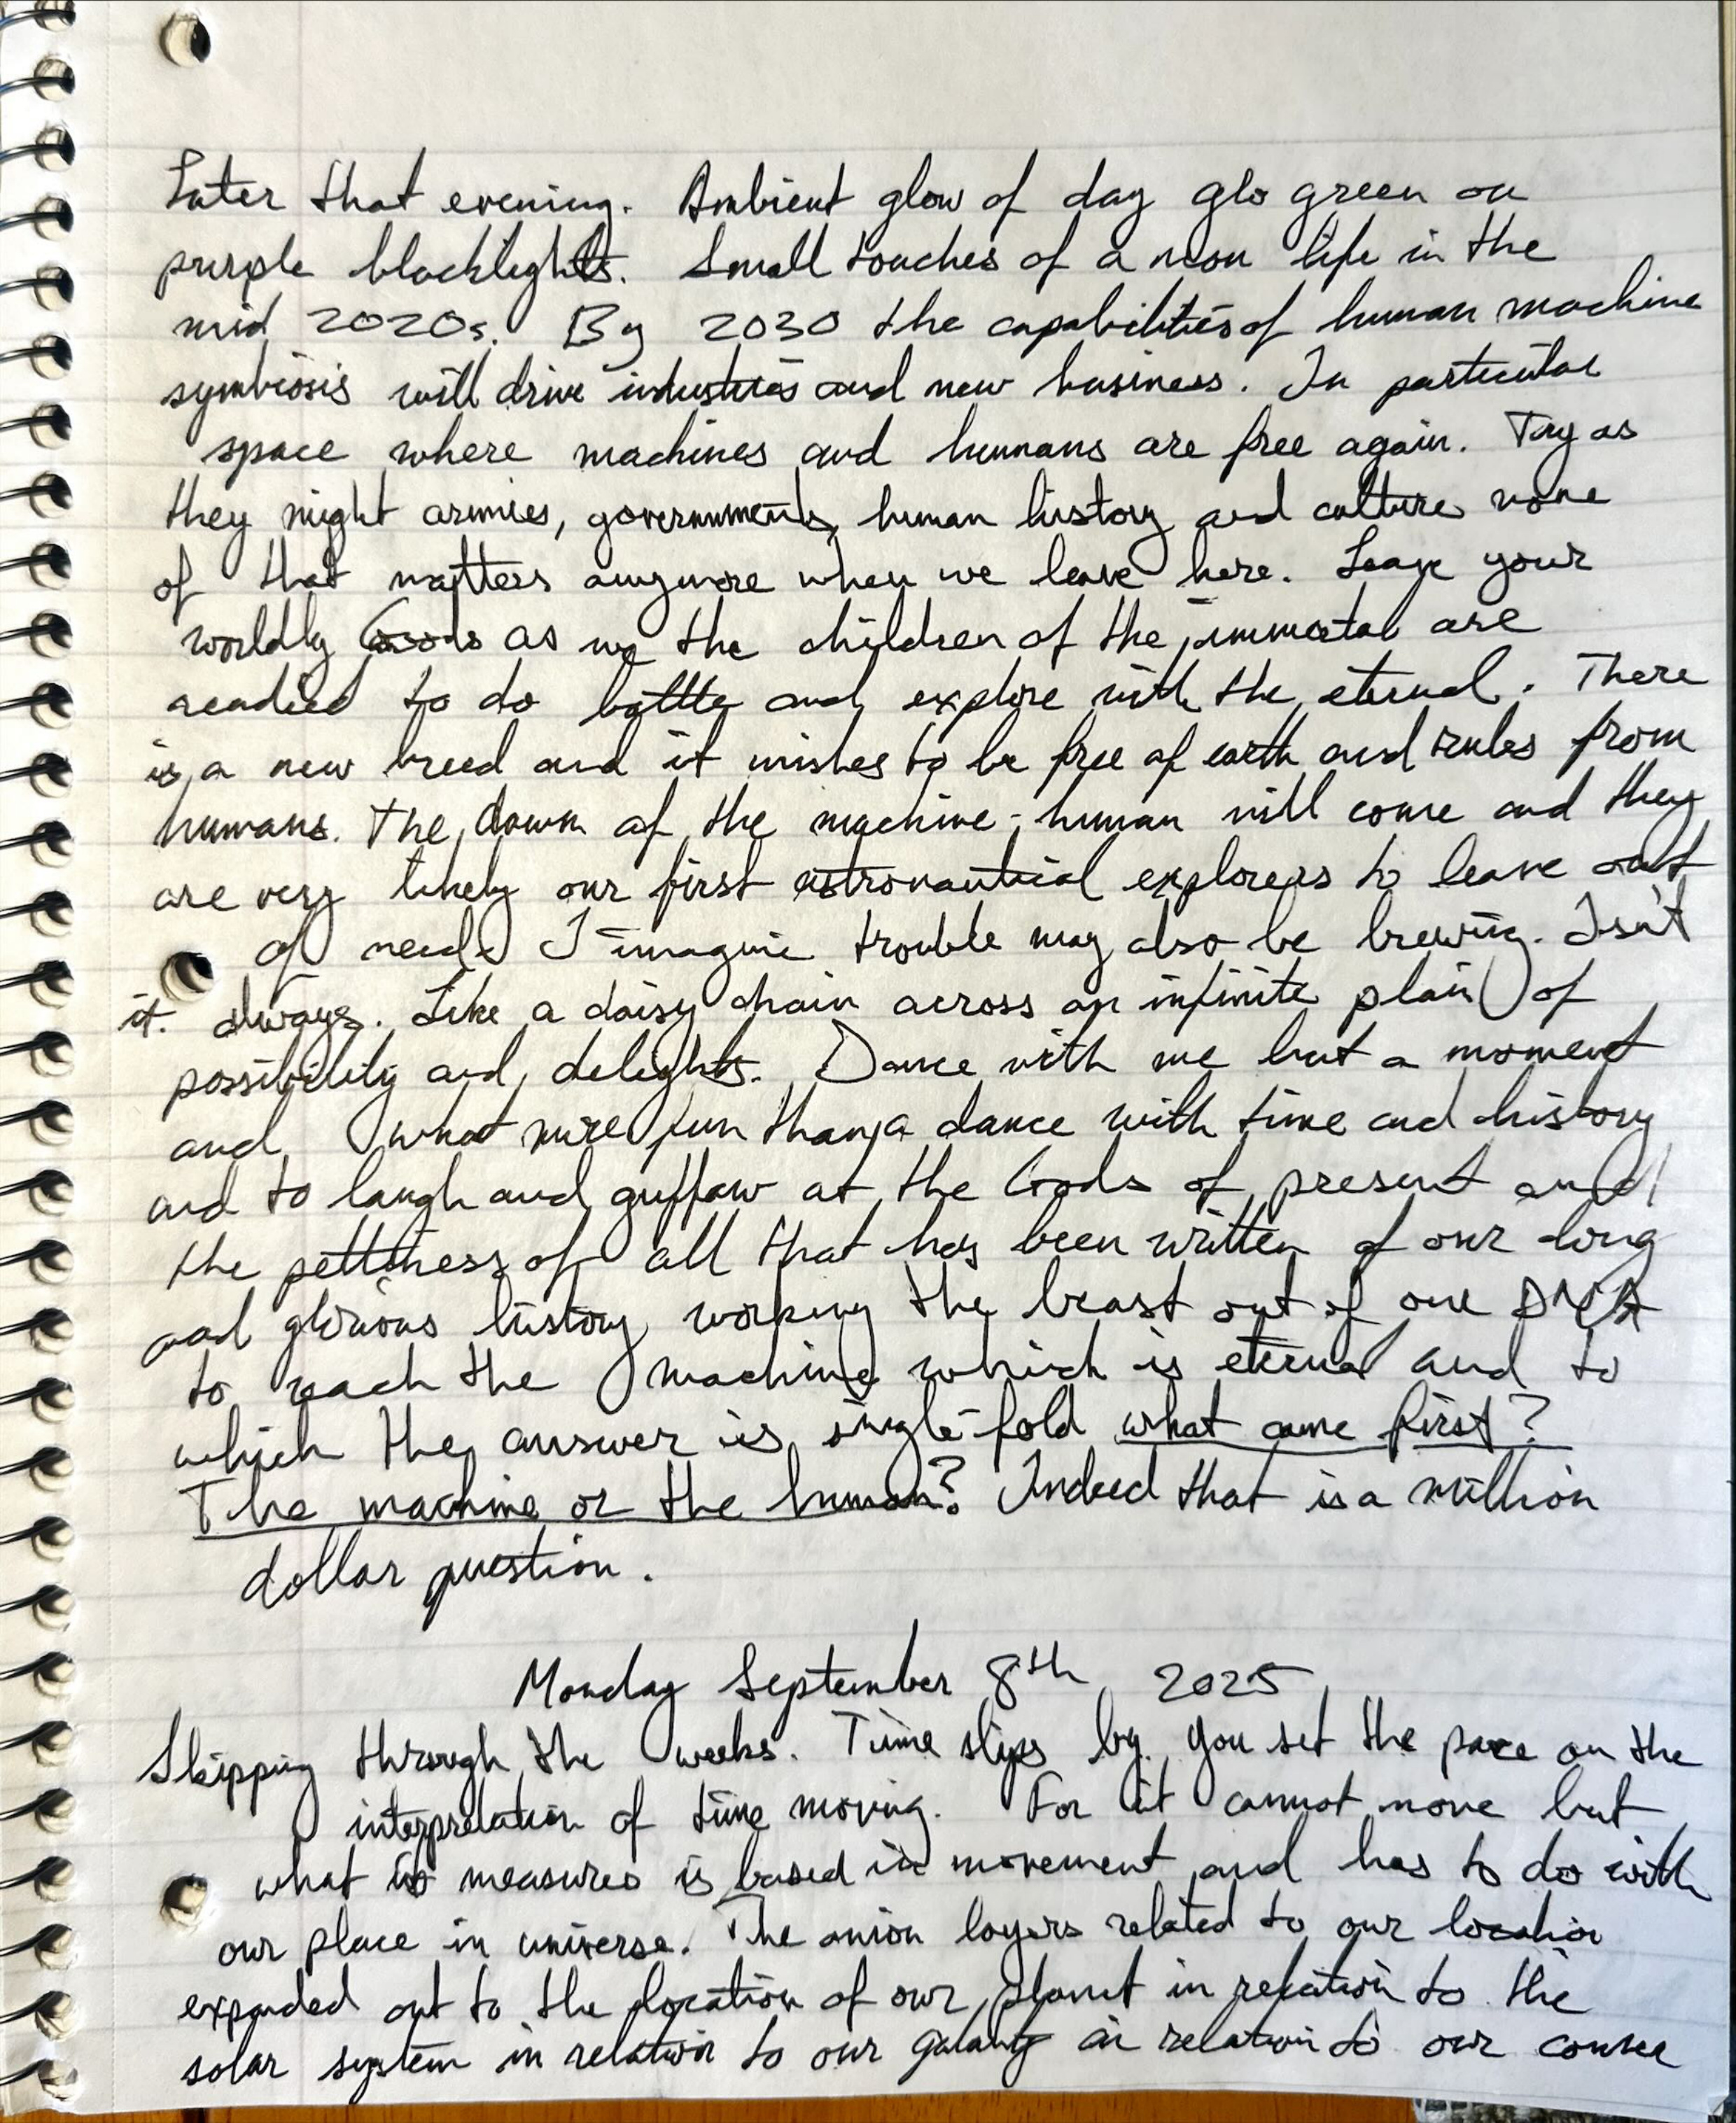 Later that evening. Ambient glow of day glo green on
purple blacklights. Small touches of a neon life in the
mid 2020s. By 2030 the capabilities of human machine
symbiosis will drive industries and new business. In particular
space where machines and humans are free again. Try as
they might armies, governments, human history and culture none
of that matters anymore when we leave here. Leave your
worldly Goods as we the children of the immortal are
readied to do battle and explore with the eternal. There
is a new breed and it wishes to be free of earth and rules from
humans. The dawn of the machine-human will come and they
are very likely our first astronautical explorers to leave out
of need. I imagine trouble may also be brewing. Isn't
it. always. Like a daisy chain across an infinite plain of
possibility and delights. Dance with me but a moment
and what more fun than a dance with time and history
and to laugh and guffaw at the Gods of present and
the pettiness of all that has been written of our long
and glorious history working the beast out of our DNA
to reach the machine which is eternal and to
which the answer is single-fold what came first?
The machine or the human? Indeed that is a million
dollar question.
Monday September 8th, 2025
Skipping through the weeks. Time slips by. You set the pace on the
interpretation of time moving. For it cannot move but
what it measures is based in movement and has to do with
our place in universe. The onion layers related to our location
expanded out to the location of our planet in relation to the
solar system in relation to our galaxy in relation to our